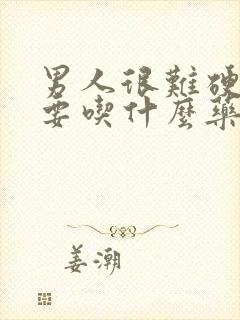 男人很難硬
要喫什麼藥
姜潮